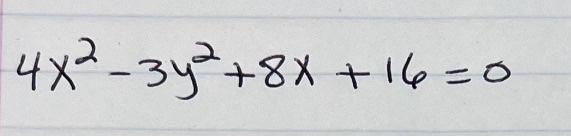 4x² - 3y² + 8x + 16 = 0